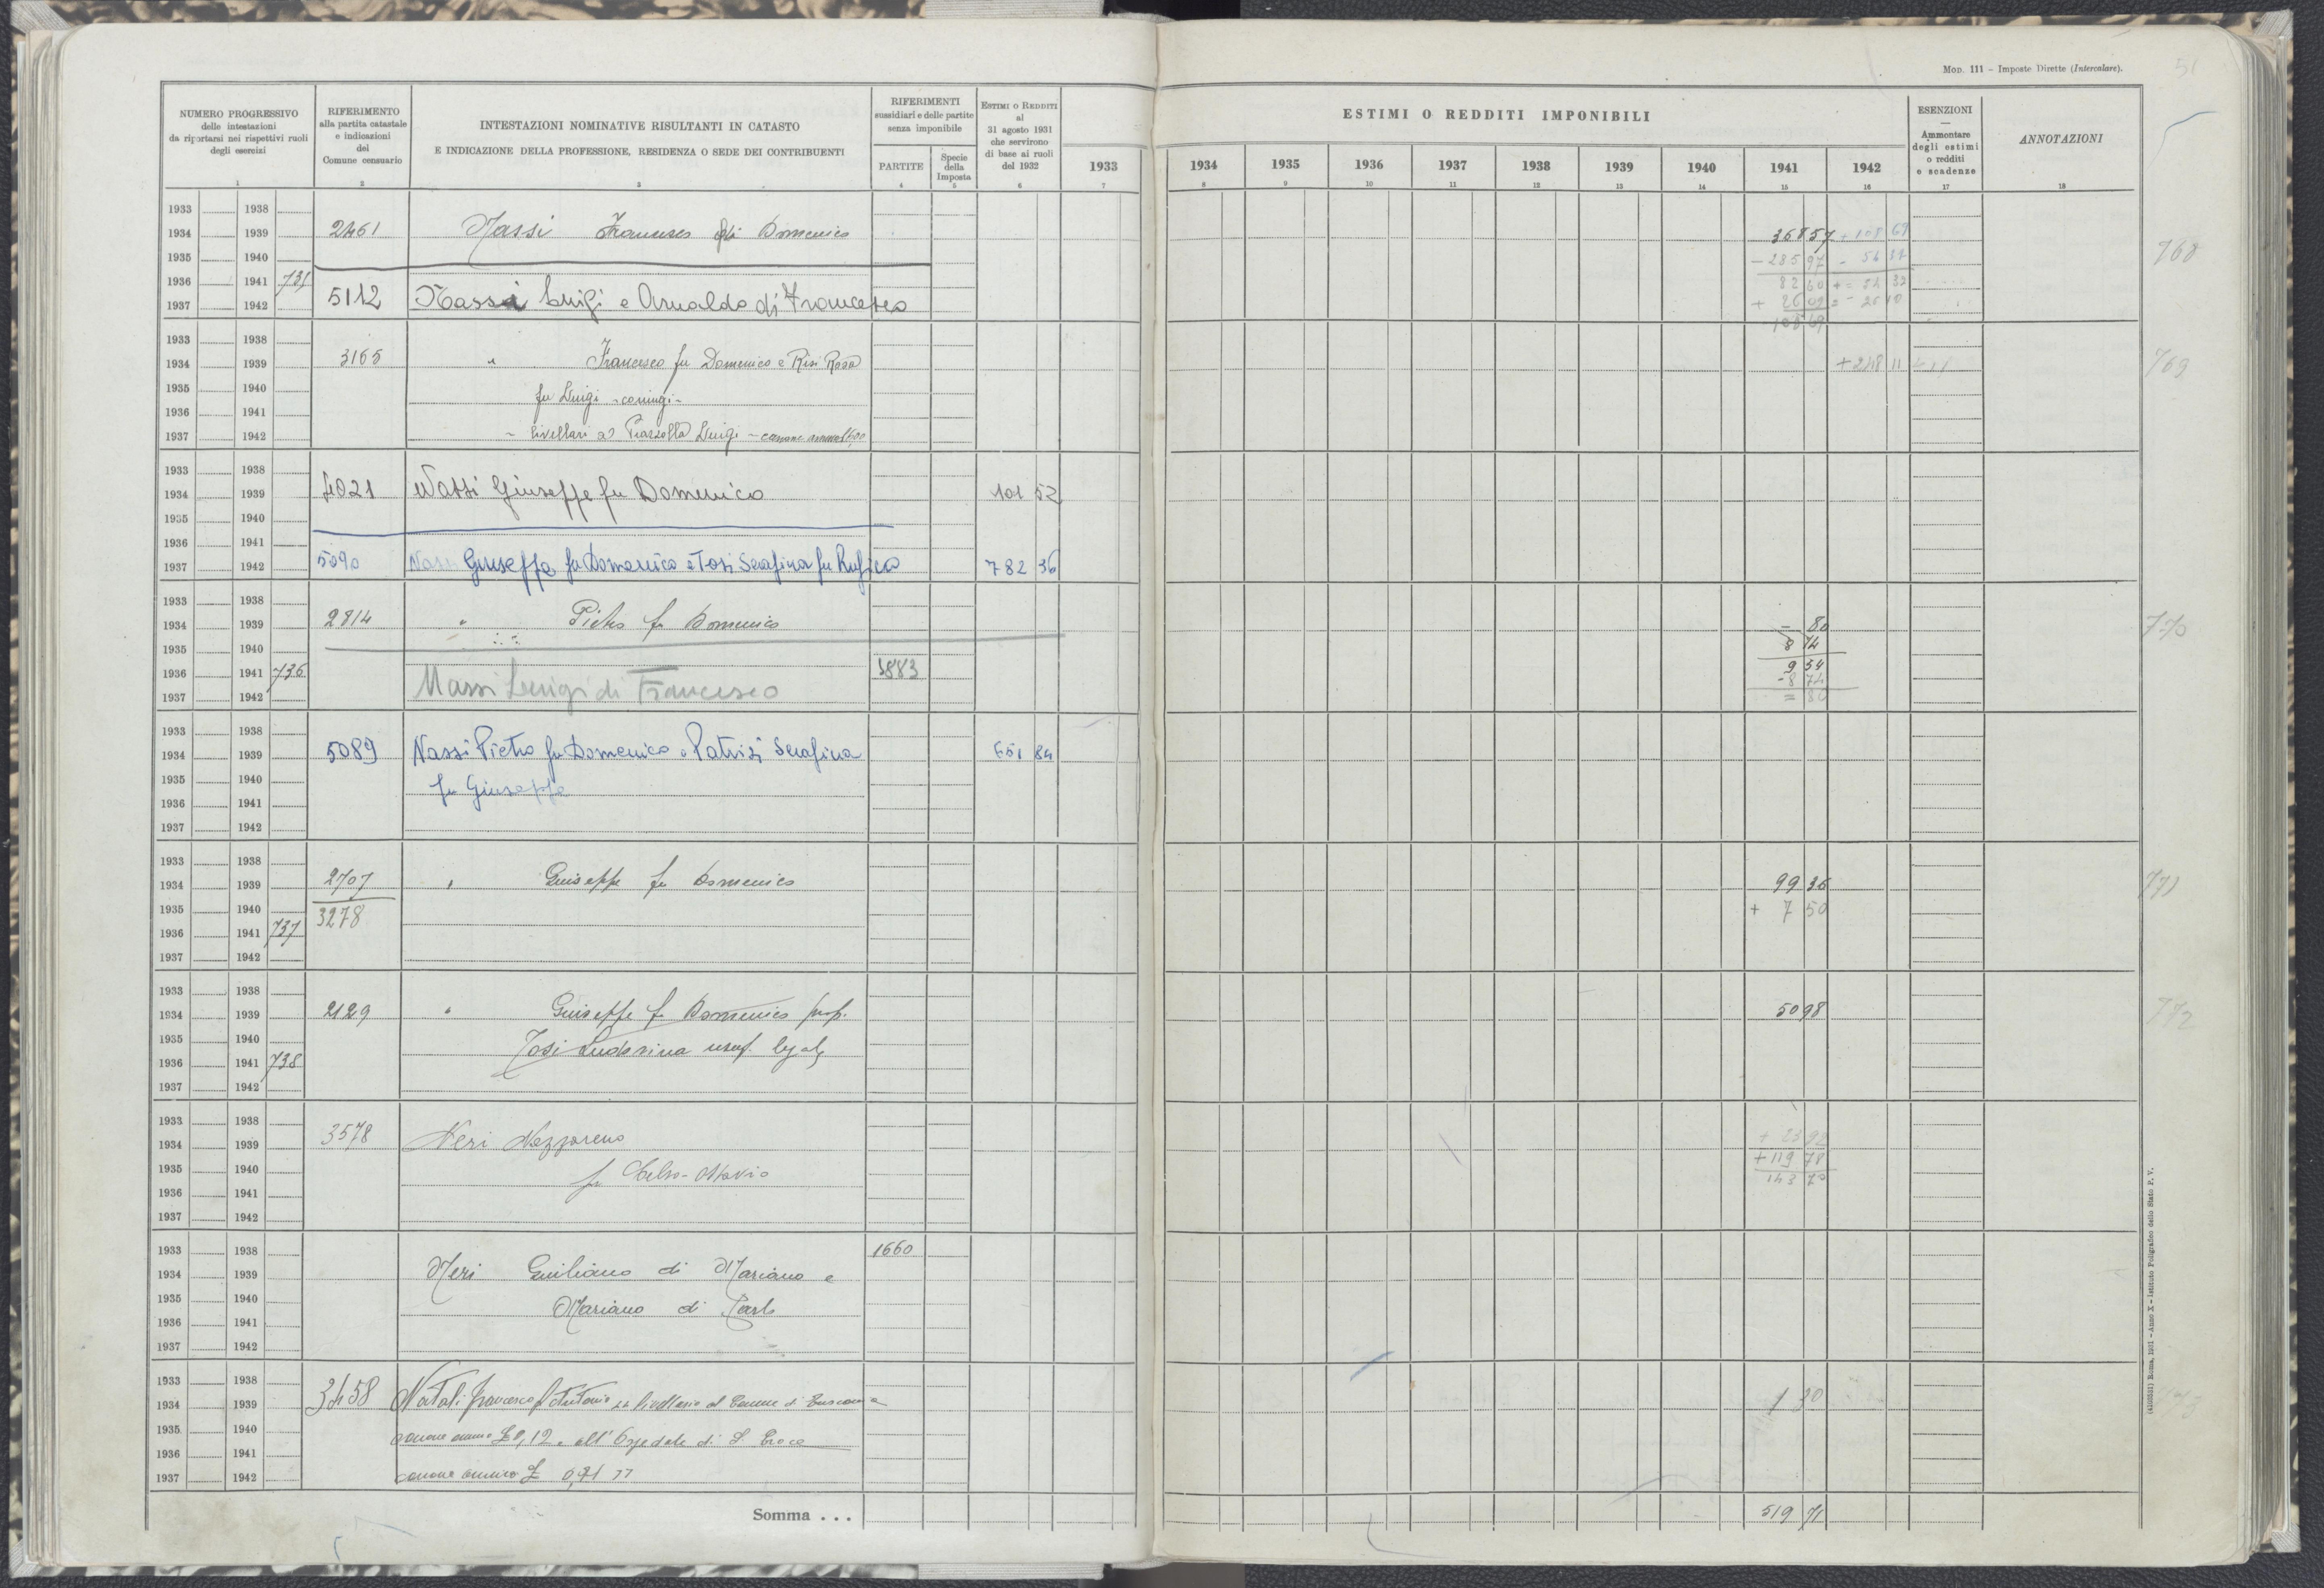 Mod. 111 - Imposte Dirette (Intercalare).
51
NUMERO PROGRESSIVO
delle intestazioni
da riportarsi nei rispettivi ruoli
degli esercizi
RIFERIMENTO
alla partita catastale
e indicazioni
del
Comune censuario
INTESTAZIONI NOMINATIVE RISULTANTI IN CATASTO
E INDICAZIONE DELLA PROFESSIONE, RESIDENZA O SEDE DEI CONTRIBUENTI
RIFERIMENTI
sussidiari e delle partite
senza imponibile
PARTITE
Specie
della
Imposta
ESTIMI O REDDITI
al
31 agosto 1931
che servirono
di base ai ruoli
del 1932
ESTIMI O REDDITI IMPONIBILI
1933 1934 1935 1936 1937 1938 1939 1940 1941 1942
ESENZIONI
Ammontare
degli estimi
o redditi
e scadenze
ANNOTAZIONI
1 2 3 4 5 6 7 8 9 10 11 12 13 14 15 16 17 18
1933 1938
1934 1939 2461 Nassi Francesco di Domenico 368 57 + 108 69 768
1935 1940 - 285 97
1936 1941 731 82 60
1937 1942 5112 Nassi Luigi e Arnaldo di Francesco + 26 09
108 69
1933 1938
1934 1939 3165 " Francesco fu Domenico e Risi Rosa + 248 11 769
1935 1940 fu Luigi - coniugi -
1936 1941
1937 1942 - livellari a Piazzolla Luigi - canone annuo
1933 1938
1934 1939 4021 Nassi Giuseppe fu Domenico 101 52
1935 1940
1936 1941
1937 1942 5090 Nassi Giuseppe fu Domenico e Tosi Serafina fu 782 36
1933 1938
1934 1939 2814 " Pietro fu Domenico - 80 770
1935 1940 8 74
1936 1941 736 3883 9 54
1937 1942 Massi Luigi di Francesco - 8 74
= 80
1933 1938
1934 1939 5089 Nassi Pietro fu Domenico e Patrizi Serafina 651 84
1935 1940 fu Giuseppe
1936 1941
1937 1942
1933 1938
1934 1939 2707 " Giuseppe fu Domenico 99 36 771
1935 1940 3278 + 7 50
1936 1941 737
1937 1942
1933 1938
1934 1939 2129 " Giuseppe fu Domenico prop. 50 98 772
1935 1940 Tosi Ludovina usuf. legale
1936 1941 738
1937 1942
1933 1938
1934 1939 3578 Neri Nazzareno + 23 92
1935 1940 fu Celso-Ottavio + 119 78
1936 1941 143 70
1937 1942
1933 1938 1660
1934 1939 Neri Giuliano di Mariano e
1935 1940 Mariano di Carlo
1936 1941
1937 1942
1933 1938
1934 1939 3458 Natali Francesco fu Antonio livellario al Comune di 1 30 773
1935 1940 canone annuo £ 0,12 e all'Ospedale di S. Croce
1936 1941
1937 1942 canone annuo £ 0,71
Somma . . . 519 71
(4100351) Roma, 1931 - Anno X - Istituto Poligrafico dello Stato P. V.